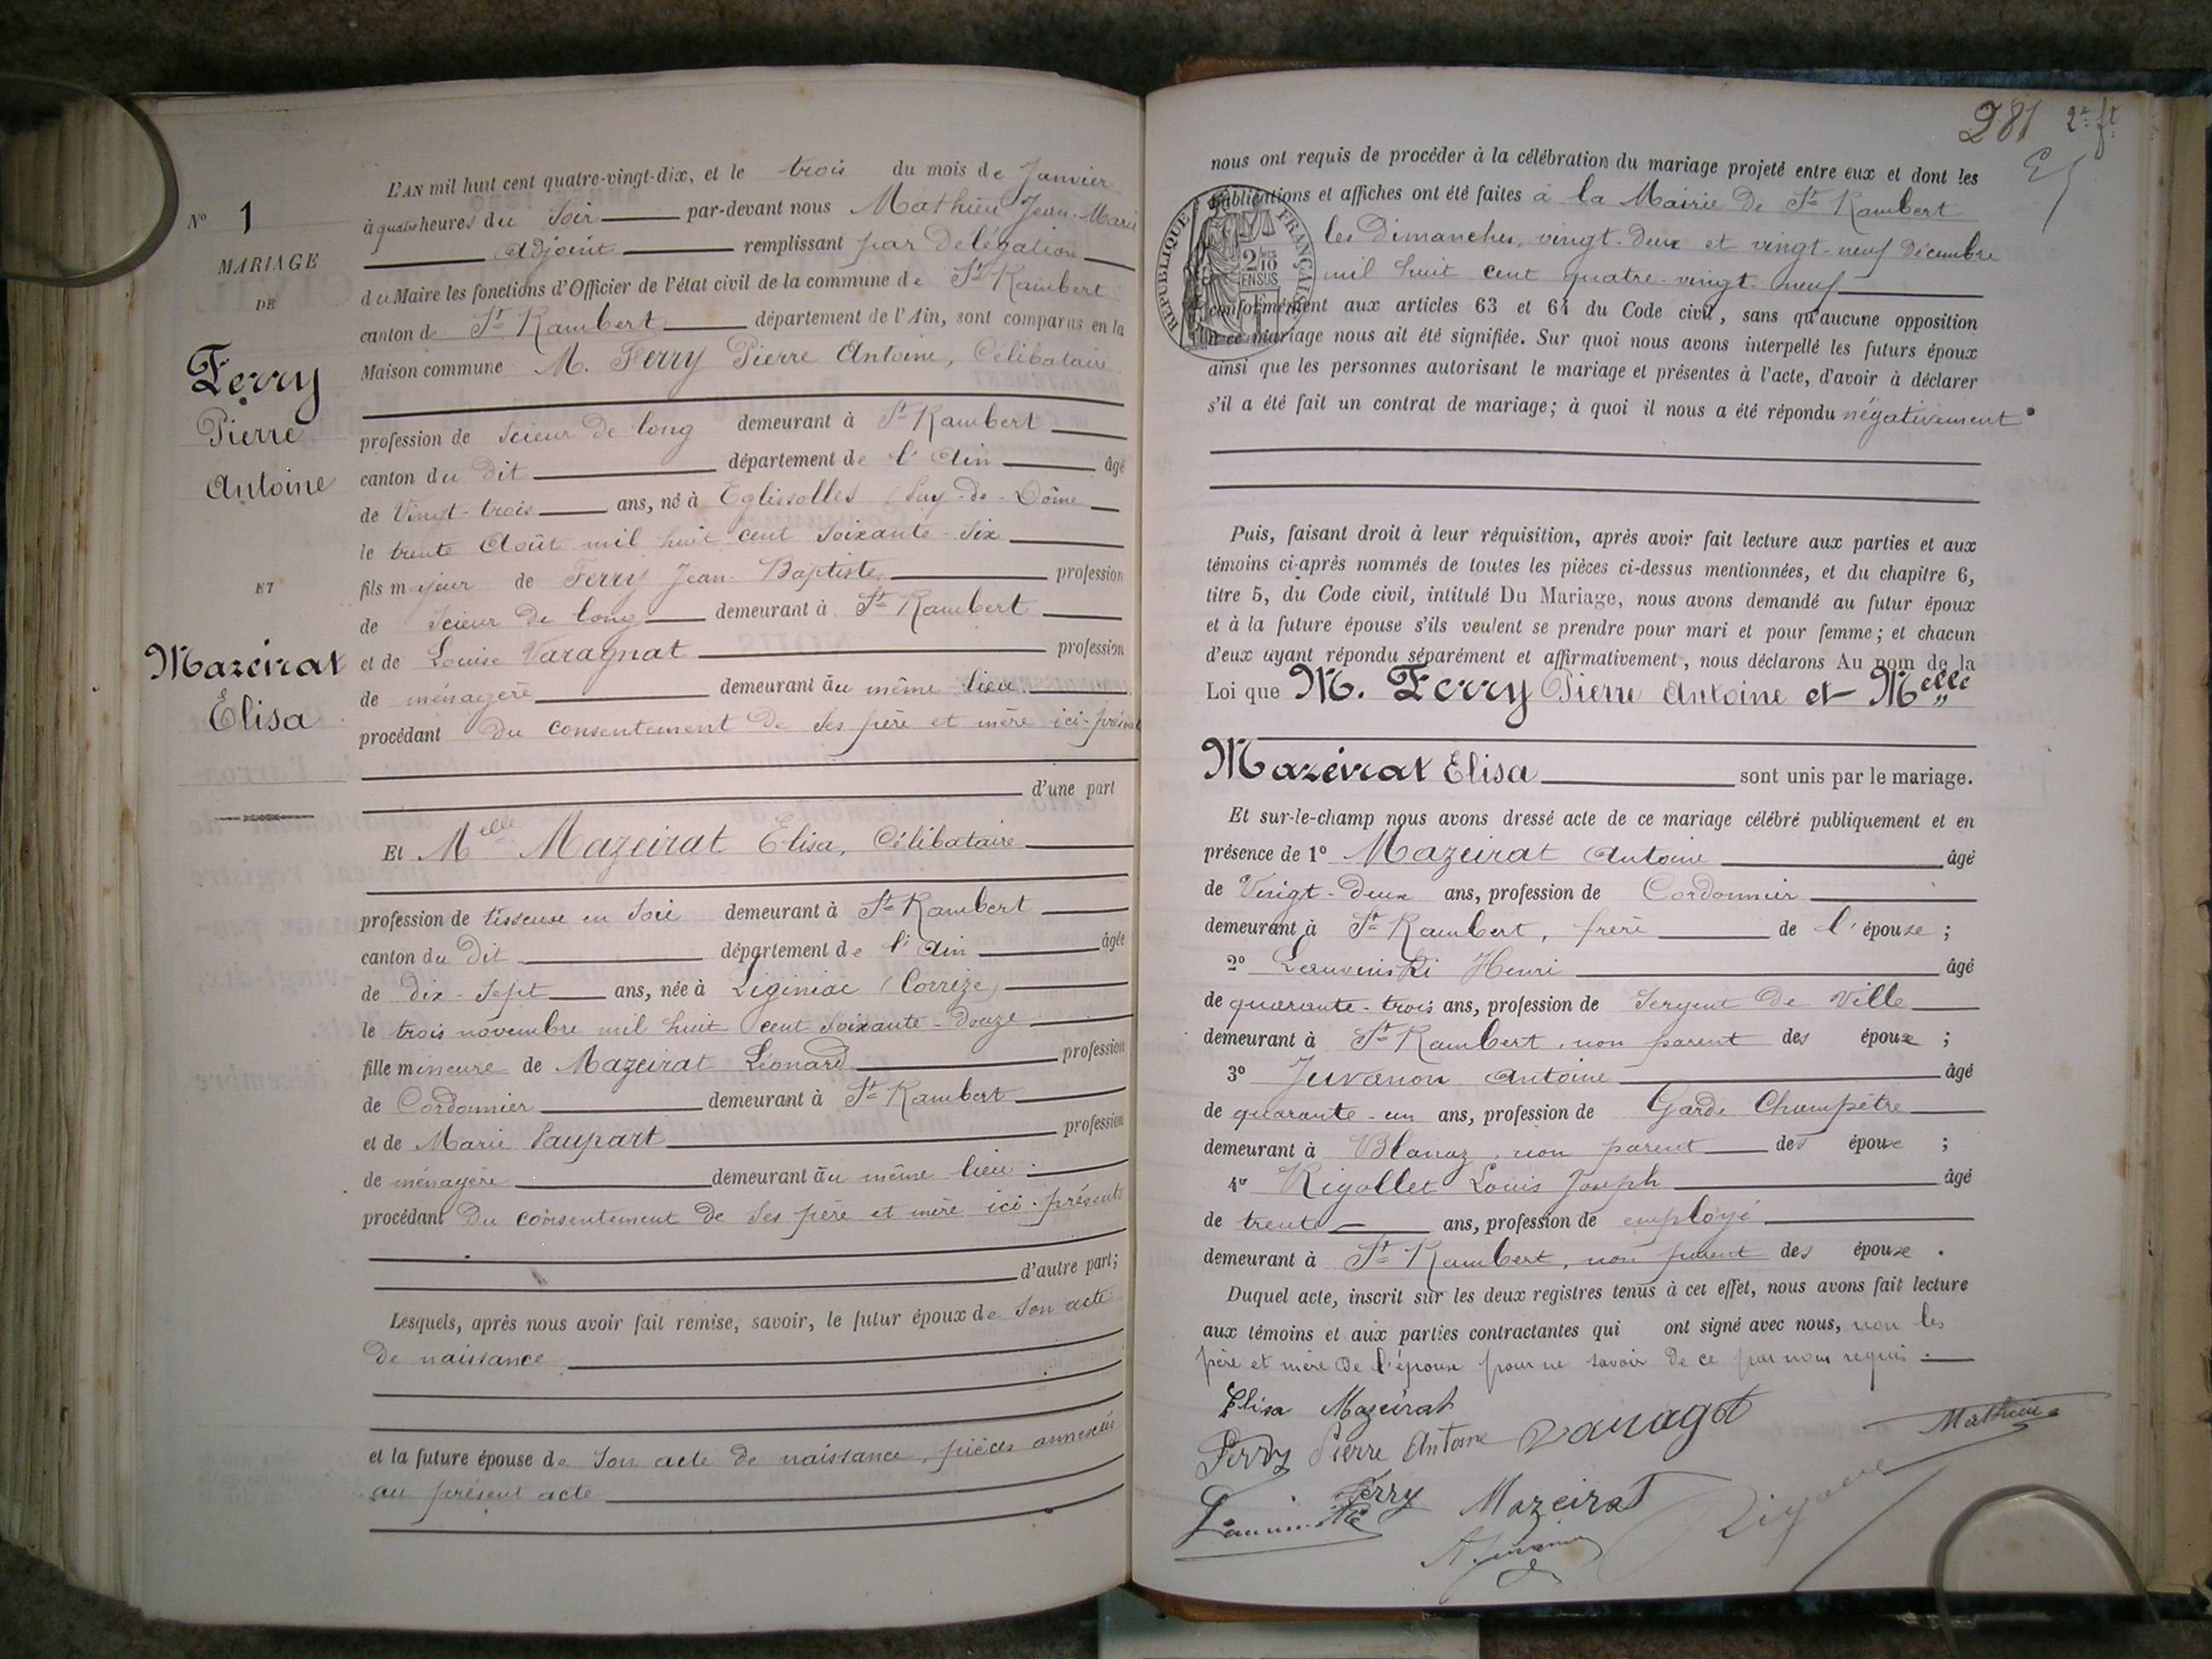 N° 1
MARIAGE
DE
Ferry
Pierre
Antoine
ET
Mazeirat
Elisa
L'AN mil huit cent quatre-vingt-dix, et le trois du mois de Janvier
à quatre heures du Soir par-devant nous Mathieu Jean-Marie
Adjoint remplissant par Délégation
du Maire les fonctions d'Officier de l'état civil de la commune de St Rambert
canton de St Rambert département de l'Ain, sont comparus en la
Maison commune M. Ferry Pierre Antoine, Célibataire
profession de Scieur de long demeurant à St Rambert
canton du dit département de l'Ain âgé
de Vingt-trois ans, né à Eglisolles (Puy-de-Dôme
le trente Août mil huit cent Soixante-Six
fils majeur de Ferry Jean-Baptiste profession
de Scieur de long demeurant à St Rambert
et de Louise Varagnat profession
de ménagère demeurant au même lieu
procédant du consentement de Ses père et mère ici-présents
d'une part
Et Melle Mazeirat Elisa, Célibataire
profession de tisseuse en Soie demeurant à St Rambert
canton du Dit département de l'Ain âgée
de dix-Sept ans, née à Liginiac (Corrèze)
le trois novembre mil huit cent Soixante-Douze
fille mineure de Mazeirat Léonard profession
de Cordonnier demeurant à St Rambert
et de Marie Saupart profession
de ménagère demeurant au même lieu
procédant Du consentement de Ses père et mère ici-présents
d'autre part;
Lesquels, après nous avoir fait remise, savoir, le futur époux de Son acte
De naissance
et la future épouse de Son acte de naissance, pièces annexées
au présent acte
281 2e ft
nous ont requis de procéder à la célébration du mariage projeté entre eux et dont les
publications et affiches ont été faites à la Mairie de St Rambert
les Dimanches, vingt-deux et vingt-neuf décembre
mil huit cent quatre-vingt-neuf
conformément aux articles 63 et 64 du Code civil, sans qu'aucune opposition
à ce mariage nous ait été signifiée. Sur quoi nous avons interpellé les futurs époux
ainsi que les personnes autorisant le mariage et présentes à l'acte, d'avoir à déclarer
s'il a été fait un contrat de mariage; à quoi il nous a été répondu négativement.
RÉPUBLIQUE FRANÇAISE
2/10
EN SUS
Puis, faisant droit à leur réquisition, après avoir fait lecture aux parties et aux
témoins ci-après nommés de toutes les pièces ci-dessus mentionnées, et du chapitre 6,
titre 5, du Code civil, intitulé Du Mariage, nous avons demandé au futur époux
et à la future épouse s'ils veulent se prendre pour mari et pour femme; et chacun
d'eux ayant répondu séparément et affirmativement, nous déclarons Au nom de la
Loi que M. Ferry Pierre Antoine et Melle
Mazeirat Elisa sont unis par le mariage.
Et sur-le-champ nous avons dressé acte de ce mariage célébré publiquement et en
présence de 1° Mazeirat Antoine âgé
de Vingt-Deux ans, profession de Cordonnier
demeurant à St Rambert, frère de l'épouse;
2° Lauvinski Henri âgé
de quarante-trois ans, profession de Sergent De Ville
demeurant à St Rambert, non parent des époux;
3° Juvanon Antoine âgé
de quarante-un ans, profession de Garde Champêtre
demeurant à Blanaz, non parent des époux;
4° Rigollet Louis Joseph âgé
de trente ans, profession de employé
demeurant à St Rambert, non parent des époux.
Duquel acte, inscrit sur les deux registres tenus à cet effet, nous avons fait lecture
aux témoins et aux parties contractantes qui ont signé avec nous, non les
père et mère De l'épouse pour ne savoir de ce par nous requis.
Elisa Mazeirat
Ferry Pierre Antoine Varagat Mathieu
Ferry Mazeirat